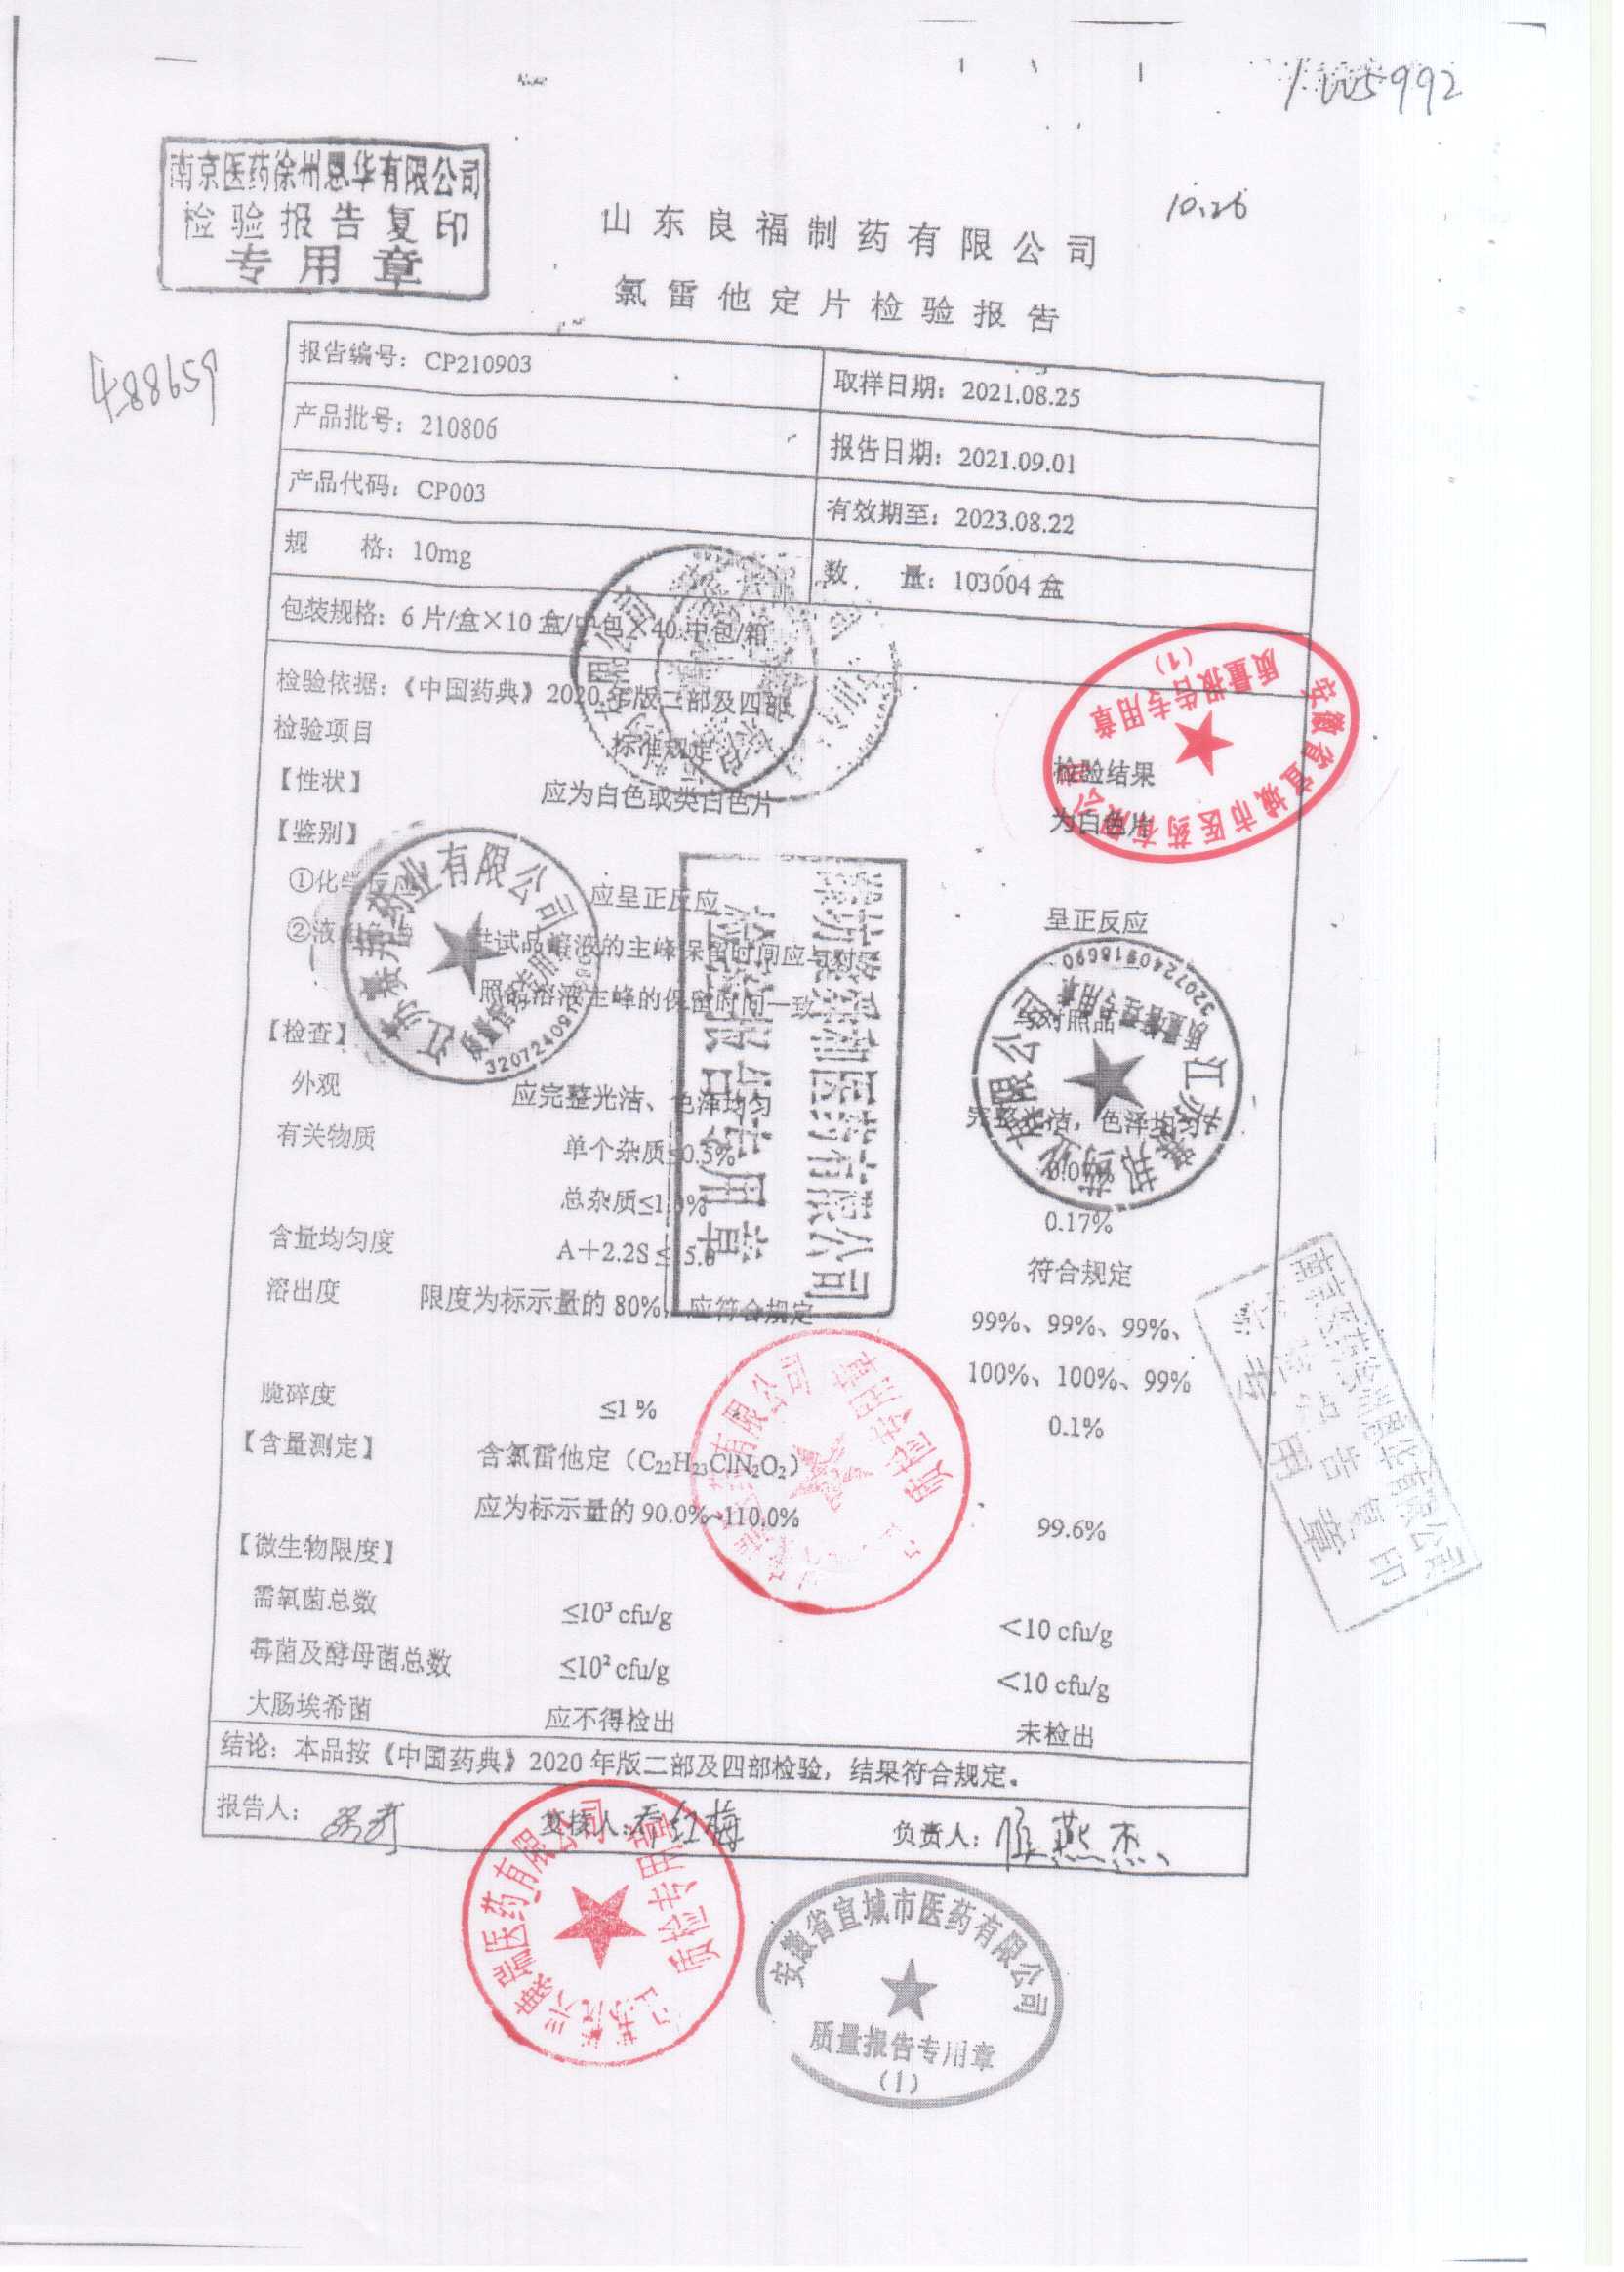 1005992
南京医药徐州恩华有限公司
检验报告复印
专用章
10.26
山东良福制药有限公司
氯雷他定片检验报告
488659
报告编号：CP210903
取样日期：2021.08.25
产品批号：210806
报告日期：2021.09.01
产品代码：CP003
有效期至：2023.08.22
规 格：10mg
数 量：103004 盒
包装规格：6 片/盒×10 盒/中包×40 中包/箱
检验依据：《中国药典》2020 年版二部及四部
检验项目 标准规定 检验结果
【性状】 应为白色或类白色片 为白色片
【鉴别】
①化学 应呈正反应 呈正反应
②液 试品溶液的主峰保留时间应与对 与对照品
照品溶液主峰的保留时间一致
【检查】
外观 应完整光洁、色泽均匀 完整光洁，色泽均匀
有关物质 单个杂质≤0.5%
总杂质≤1. % 0.17%
含量均匀度 A＋2.2S≤ 5.0 符合规定
溶出度 限度为标示量的 80%，应符合规定 99%、99%、99%、
100%、100%、99%
脆碎度 ≤1 % 0.1%
【含量测定】 含氯雷他定（C₂₂H₂₃ClN₂O₂）
应为标示量的 90.0%~110.0% 99.6%
【微生物限度】
需氧菌总数 ≤10³ cfu/g ＜10 cfu/g
霉菌及酵母菌总数 ≤10² cfu/g ＜10 cfu/g
大肠埃希菌 应不得检出 未检出
结论：本品按《中国药典》2020 年版二部及四部检验，结果符合规定。
报告人： 复核人：乔红梅 负责人：
安徽省宣城市医药有限公司
质量报告专用章
(1)
江苏赛邦药业有限公司
质量管理专用章
3207240918690
潍坊隆泰和医药有限公司
检验报告专用章
江苏赛邦药业有限公司
质量管理专用章
3207240918690
有限公司
质检专用章
南京医药徐州恩华有限公司
检验报告复印
专用章
瑞医药有限公司
质检专用章
安徽省宣城市医药有限公司
质量报告专用章
(1)